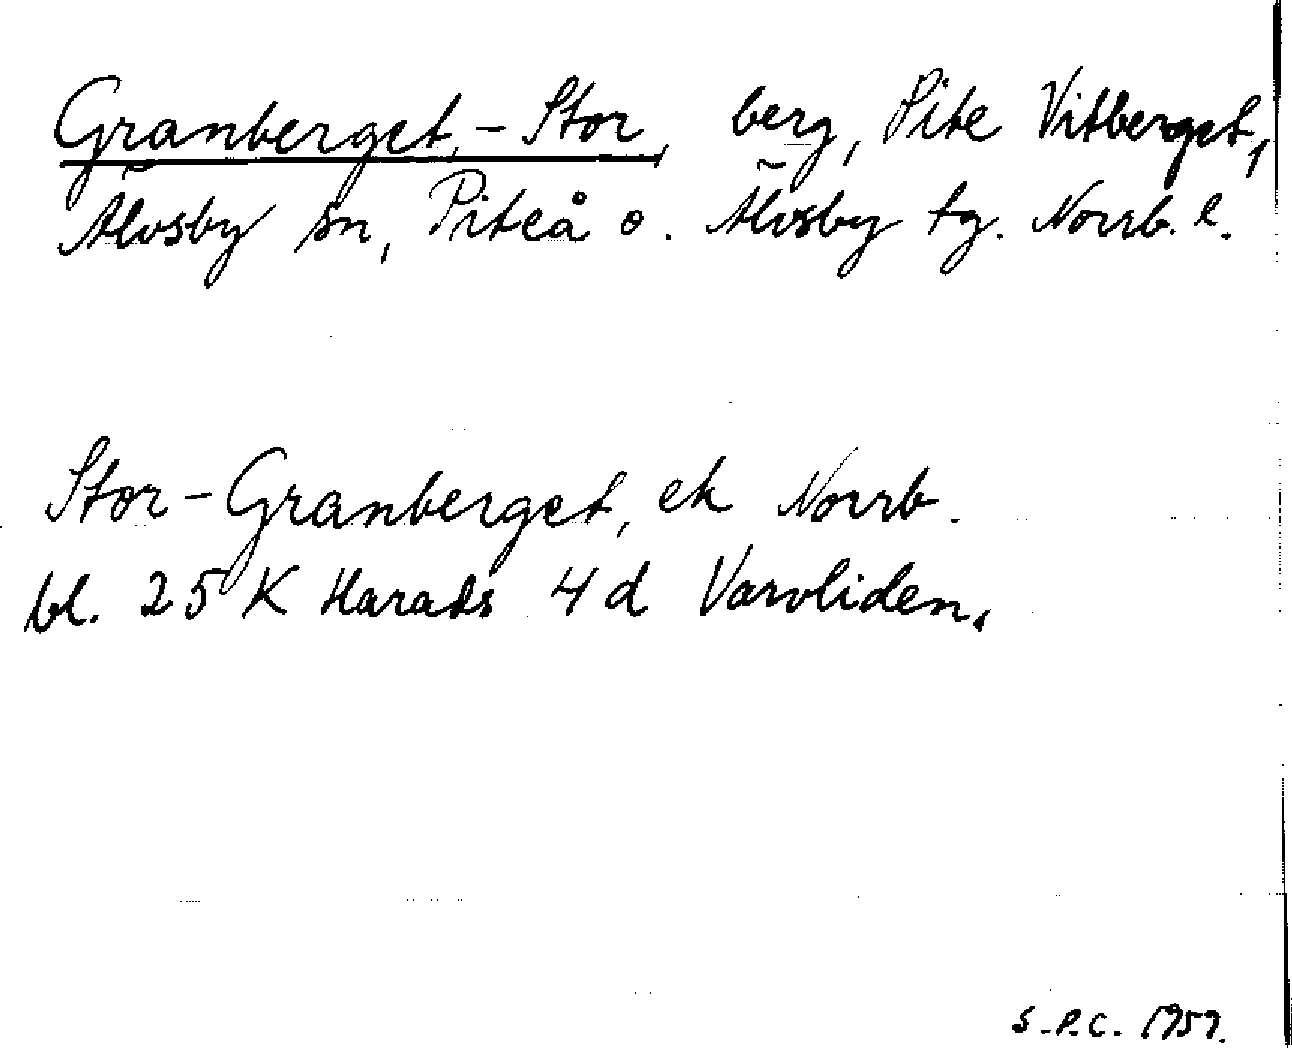 Granberget, - Stor, berg, Pite Vitberget,
Älvsby sn, Piteå o. Älvsby tg. Norrb. l.
Stor-Granberget, ek Norrb.
bl. 25 K Harads 4 d Varvliden.
S.P.C. 1959.